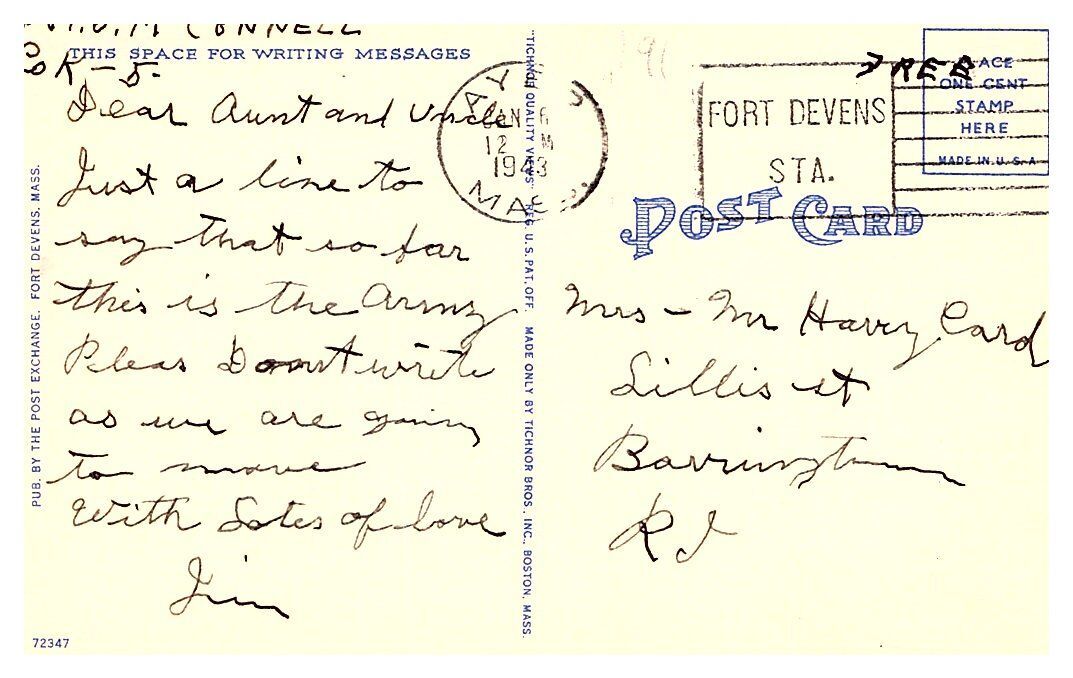 CONNELL
Co K-5-
THIS SPACE FOR WRITING MESSAGES
Dear Aunt and Uncle
Just a line to
say that so far
this is the Army
Pleas Doont write
as we are going
to move
With Lotes of love
Jim
72347
PUB. BY THE POST EXCHANGE, FORT DEVENS, MASS.
"TICHNOR QUALITY VIEWS" REG. U.S. PAT. OFF. MADE ONLY BY TICHNOR BROS., INC., BOSTON, MASS.
AY
JAN 6
12 M
1943
MASS
FORT DEVENS
STA.
FREE
PLACE
ONE CENT
STAMP
HERE
MADE IN U.S.A
POST CARD
Mrs - Mr Harry Card
Lillis st
Barringtown
R I